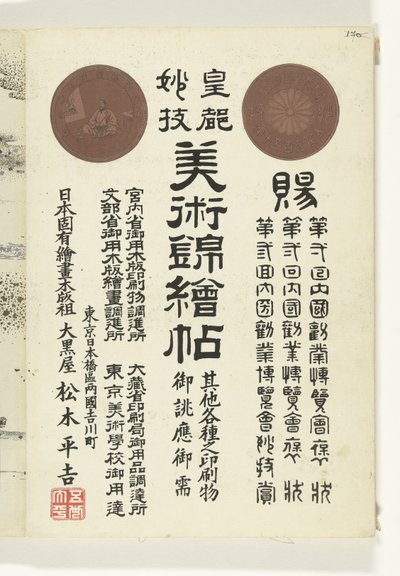 170
賜
第弍回内國勸業博覽會褒状
第弍回内國勸業博覽會褒状
第弍回内國勸業博覽會妙技賞
皇都
妙技
美術錦繪帖
其他各種之印刷物
御誂應御需
宮内省御用木版印刷物調進所
文部省御用木版繪畫調進所
大藏省印刷局御用品調達所
東京美術學校御用達
東京日本橋區兩國吉川町
日本固有繪畫木版祖 大黒屋 松木平吉